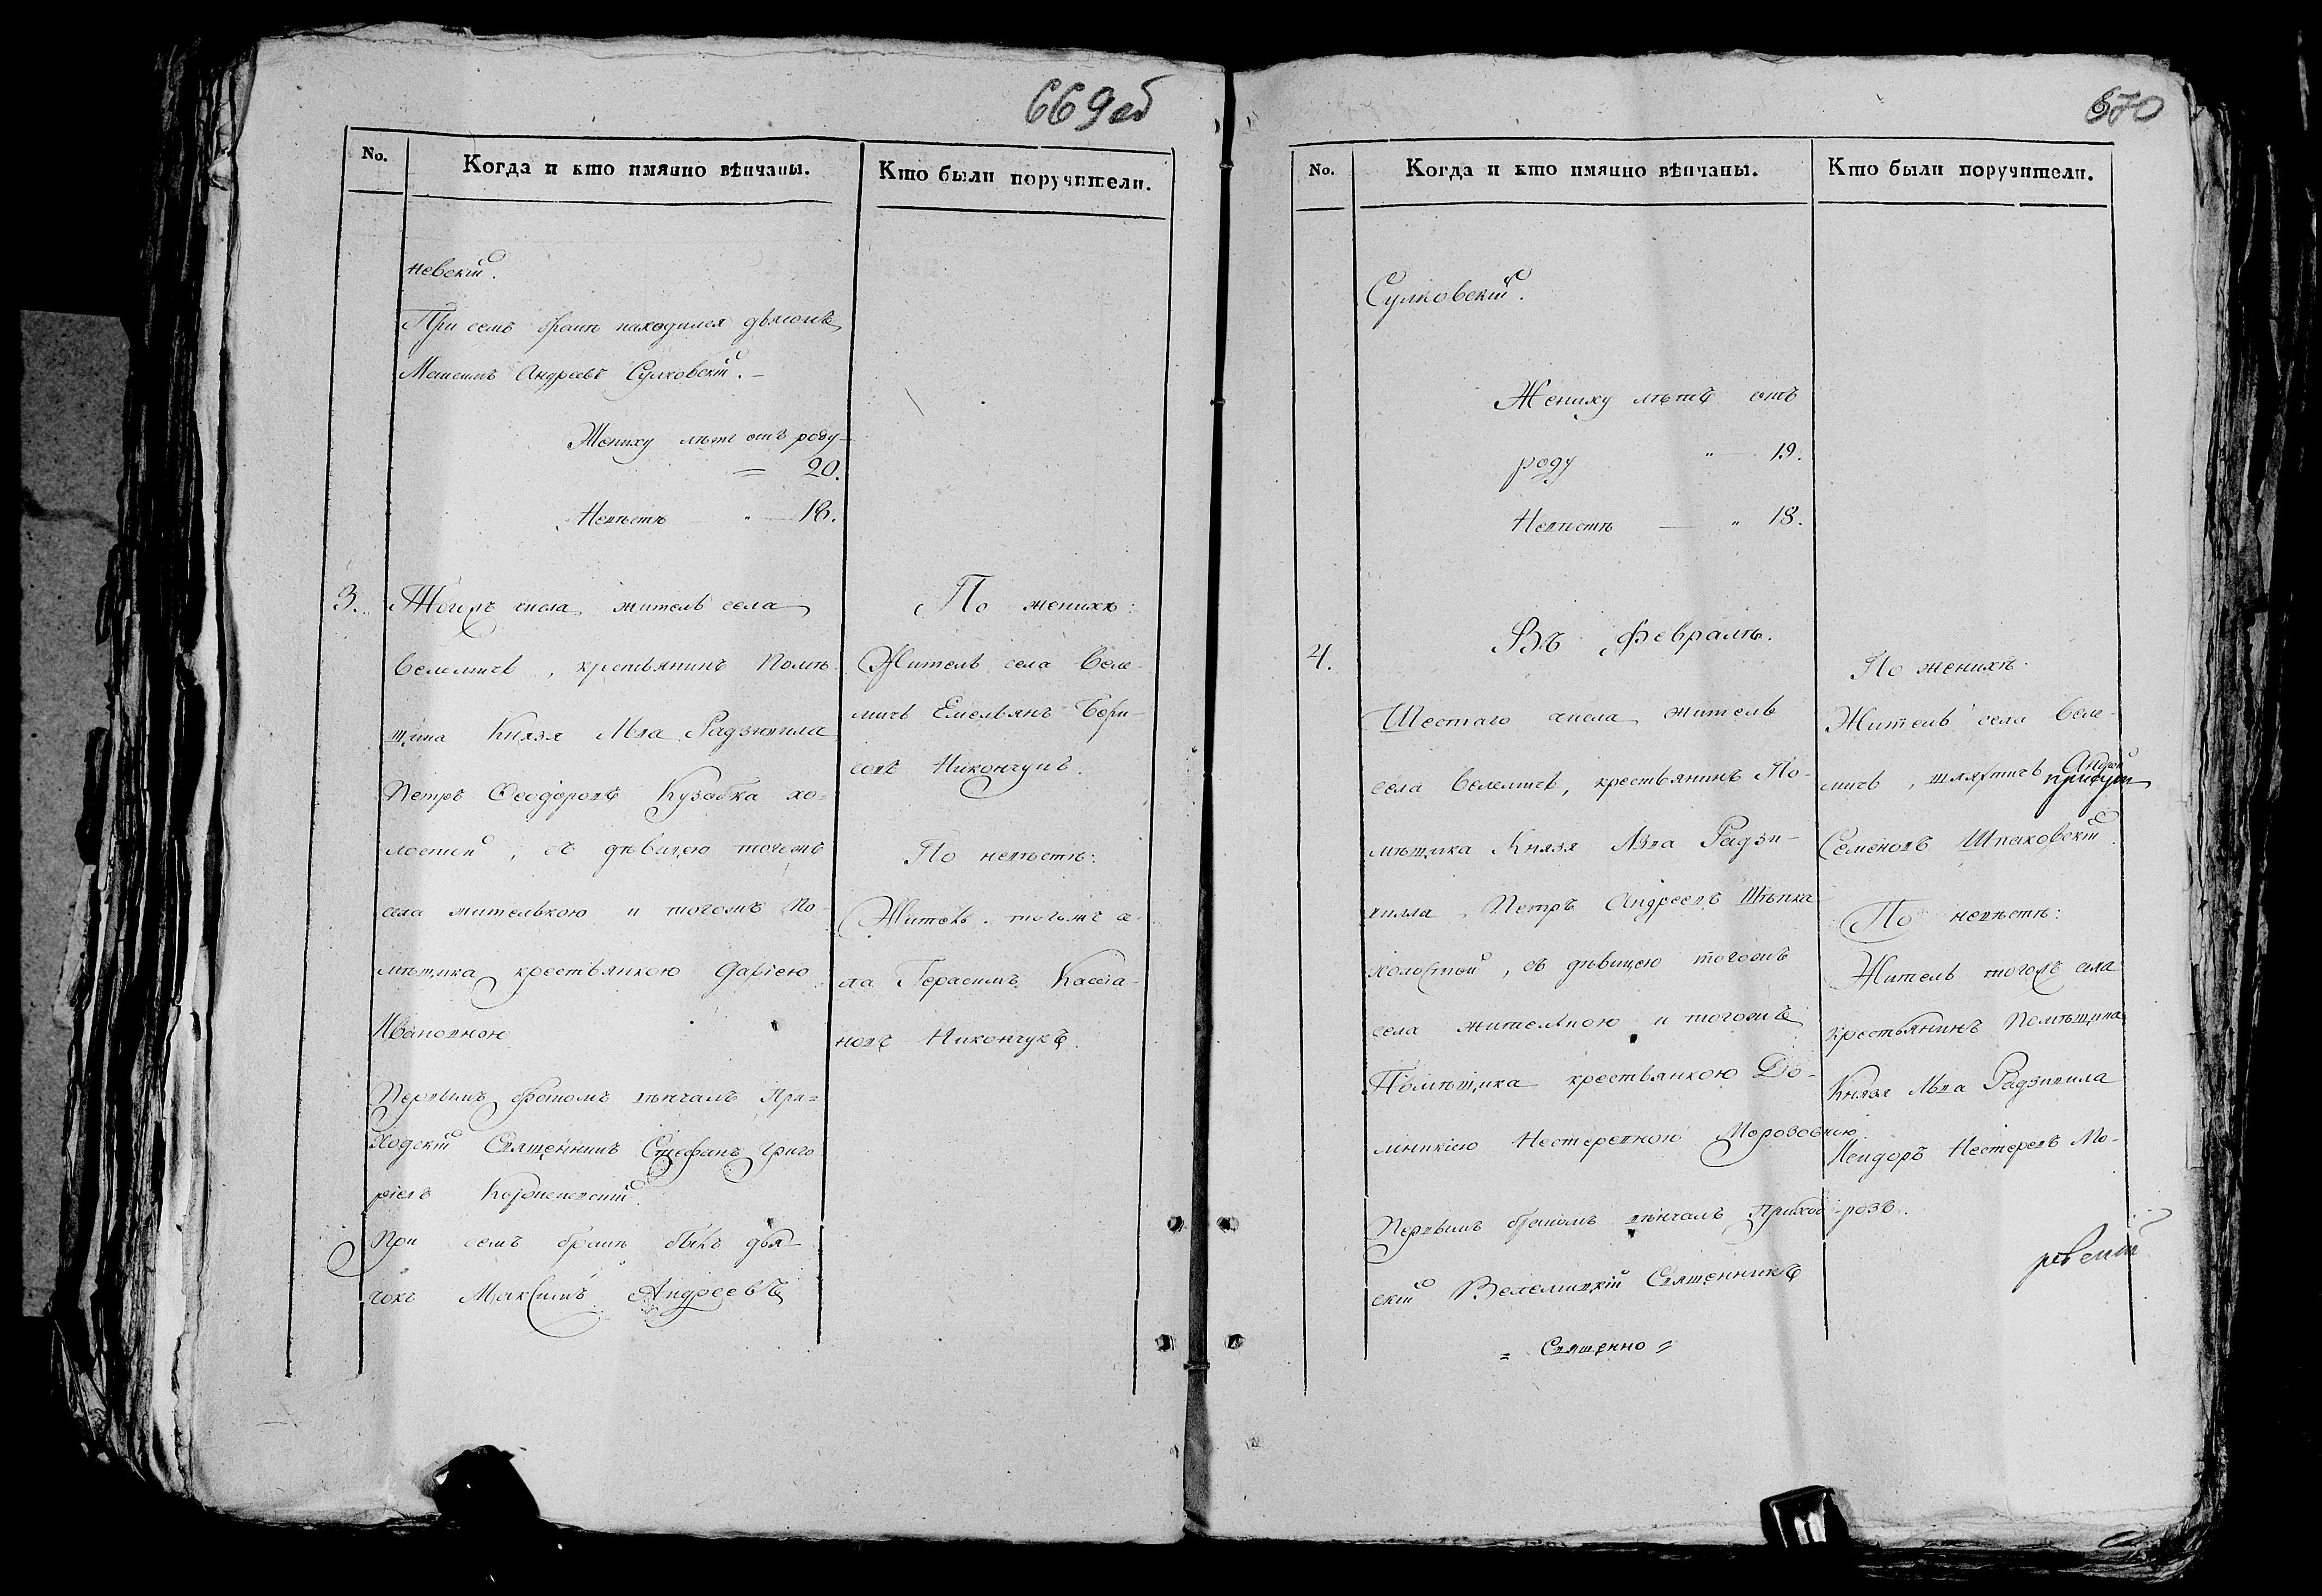 669 об
No.
Когда и кто имянно вѣнчаны.
Кто были поручители.
невскій.
При семъ бракѣ находился дьячокъ
Максимъ Андреевъ Сулковскій. —
Жениху лѣтъ отъ роду —
= 20.
Невѣстѣ — " — 18.
3.
Тогожъ числа житель села
Велемичь, крестьянинъ Помѣ-
щика Князя Льва Радзивила
Петръ Ѳеодоровъ Кузабка хо=
лостой, съ дѣвицею тогожъ
села жителькою и тогожъ По-
мѣщика крестьянкою Даріею
Ивановною
Первымъ бракомъ вѣнчалъ При=
ходскій Священникъ Стефанъ Григо
ріевъ
При семъ бракѣ былъ дья
чокъ Максимъ Андреевъ
По женихѣ:
Житель села Веле-
мичь Емельянъ Бори-
совъ Никончукъ.
По невѣстѣ:
Житель тогожъ се-
ла Герасимъ Кассіа-
новъ Никончукъ.
670
No.
Когда и кто имянно вѣнчаны.
Кто были поручители.
Сулковскій.
Жениху лѣтъ отъ
роду " — 19.
Невѣстѣ — " 18.
Въ Февралѣ.
4.
Шестаго числа житель
села Велемичь, крестьянинъ По-
мѣщика Князя Льва Радзи-
вилла, Петръ Андреевъ Шѣпка
холостой, съ дѣвицею тогожъ
села жителькою и тогожъ
Помѣщика крестьянкою До-
мникіею Нестеревною Морозовною
Первымъ бракомъ вѣнчалъ Приход-
скій Велемицкій Священникъ
= Священно =
По женихѣ.
Житель села Веле-
мичь, шляхтичь Андрей
Семеновъ Шпаковскій.
По невѣстѣ:
Житель тогожъ села
крестьянинъ Помѣщика
Князя Льва Радзивила
Исидоръ Нестеревъ Мо-
розъ.